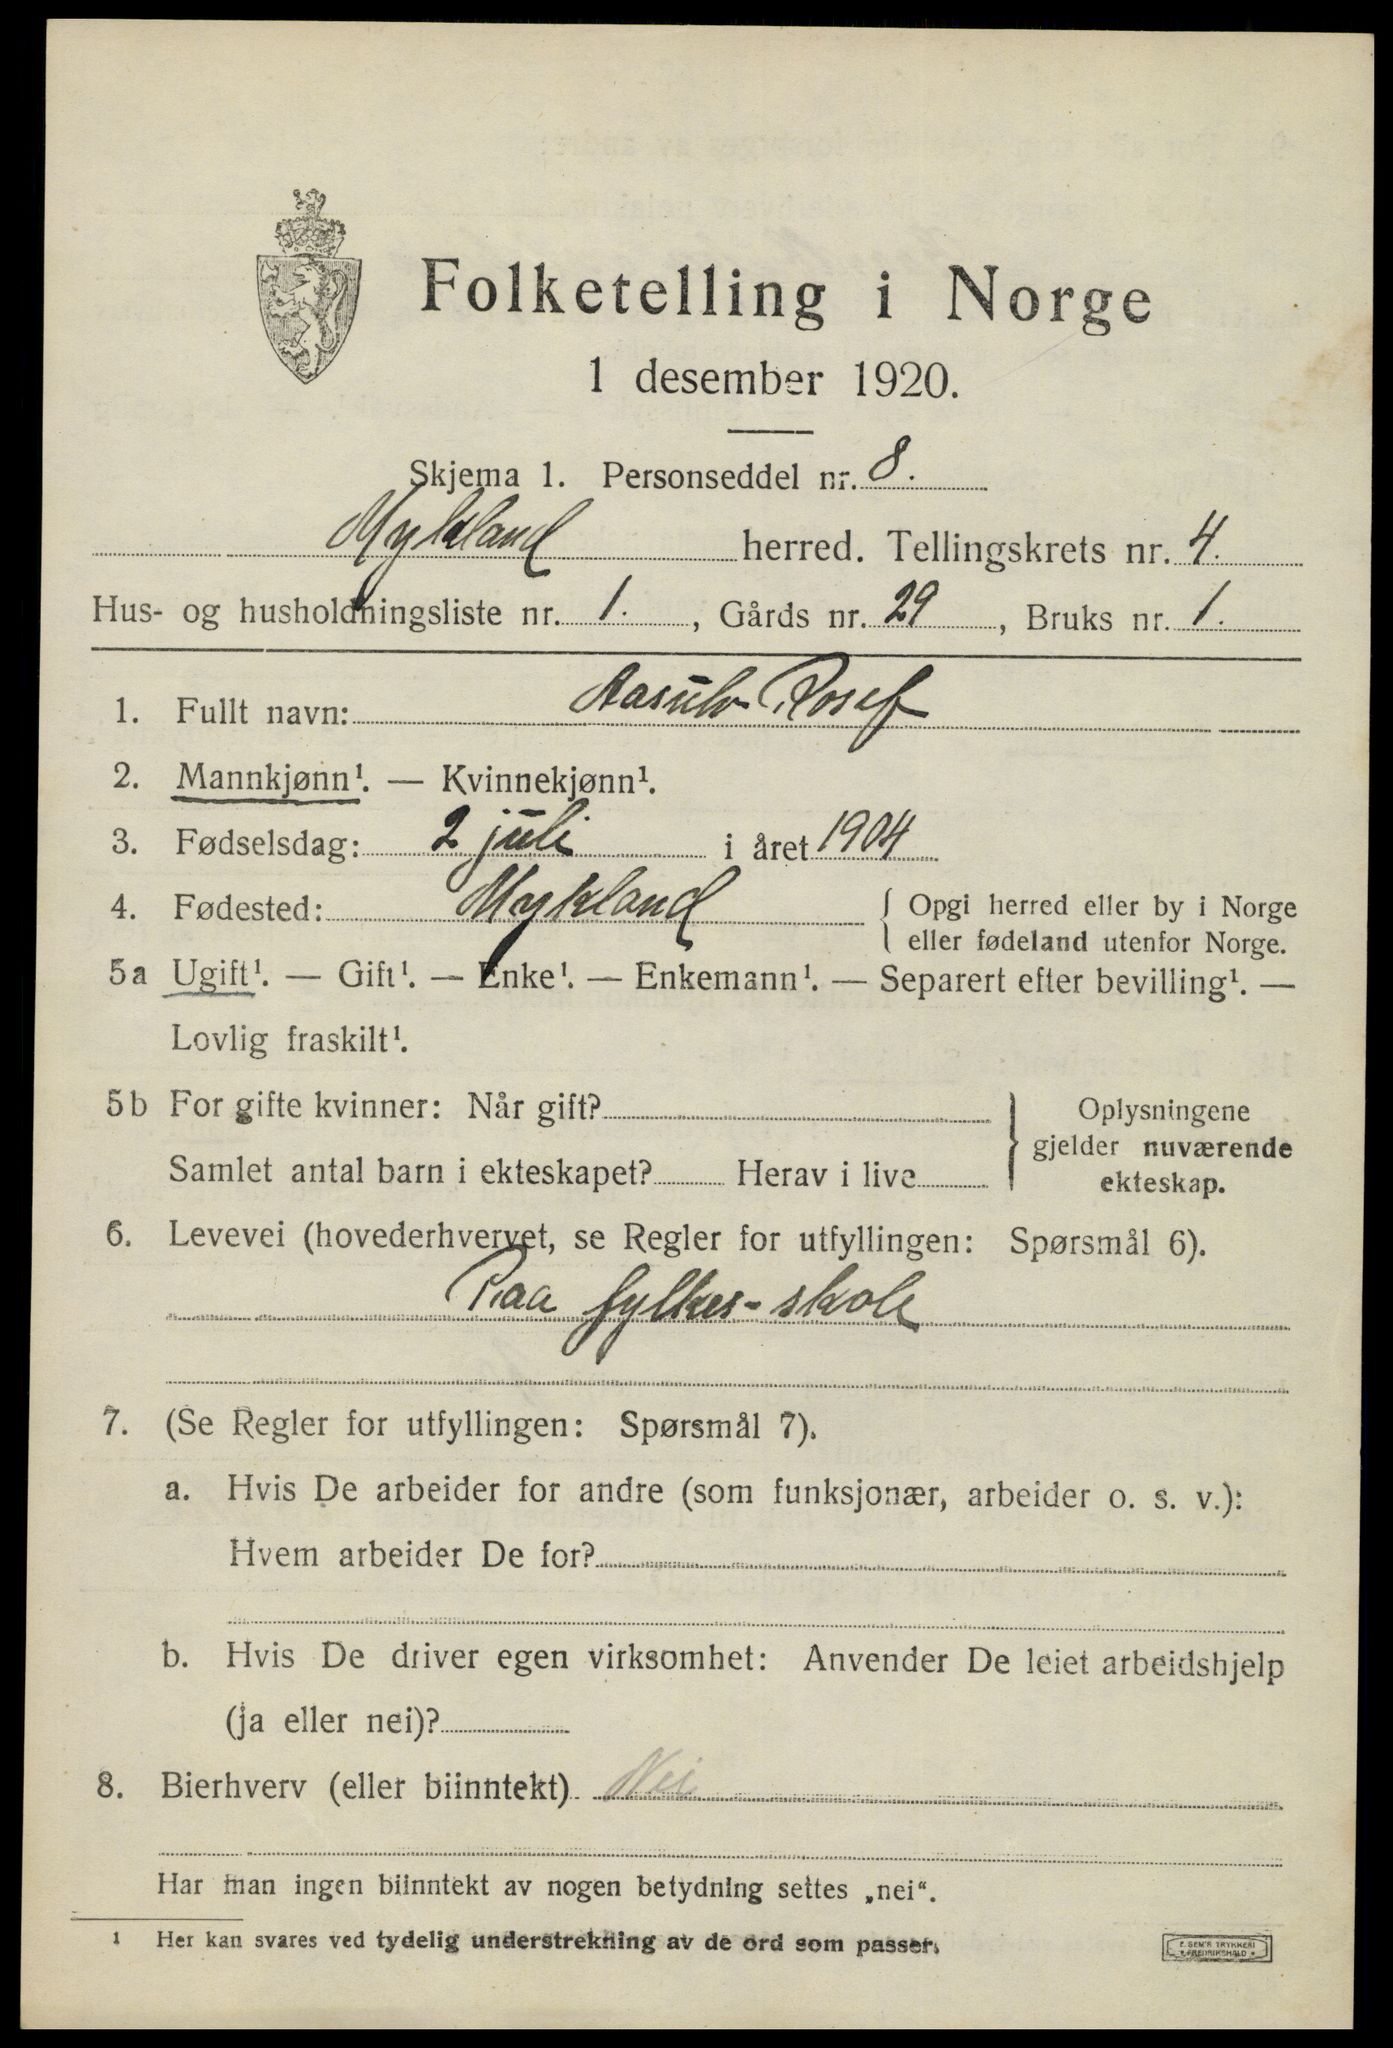 Folketelling i Norge
1 desember 1920.
Skjema 1. Personseddel nr. 8.
Mykland herred. Tellingskrets nr. 4.
Hus- og husholdningsliste nr. 1. , Gårds nr. 29 , Bruks nr. 1.
1. Fullt navn: Aasulv Rosef
2. Mannkjønn¹. — Kvinnekjønn¹.
3. Fødselsdag: 2 juli i året 1904
4. Fødested: Mykland { Opgi herred eller by i Norge
eller fødeland utenfor Norge.
5a Ugift¹. — Gift¹. — Enke¹. — Enkemann¹. — Separert efter bevilling¹. —
Lovlig fraskilt¹.
5b For gifte kvinner: Når gift? } Oplysningene
gjelder nuværende
Samlet antal barn i ekteskapet? Herav i live ekteskap.
6. Levevei (hovederhvervet, se Regler for utfyllingen: Spørsmål 6).
Paa fylkes-skole
7. (Se Regler for utfyllingen: Spørsmål 7).
a. Hvis De arbeider for andre (som funksjonær, arbeider o. s. v.):
Hvem arbeider De for?
b. Hvis De driver egen virksomhet: Anvender De leiet arbeidshjelp
(ja eller nei)?
8. Bierhverv (eller biinntekt) Nei
Har man ingen biinntekt av nogen betydning settes „nei“.
1 Her kan svares ved tydelig understrekning av de ord som passer.
E. SEM'S TRYKKERI
FREDRIKSHALD